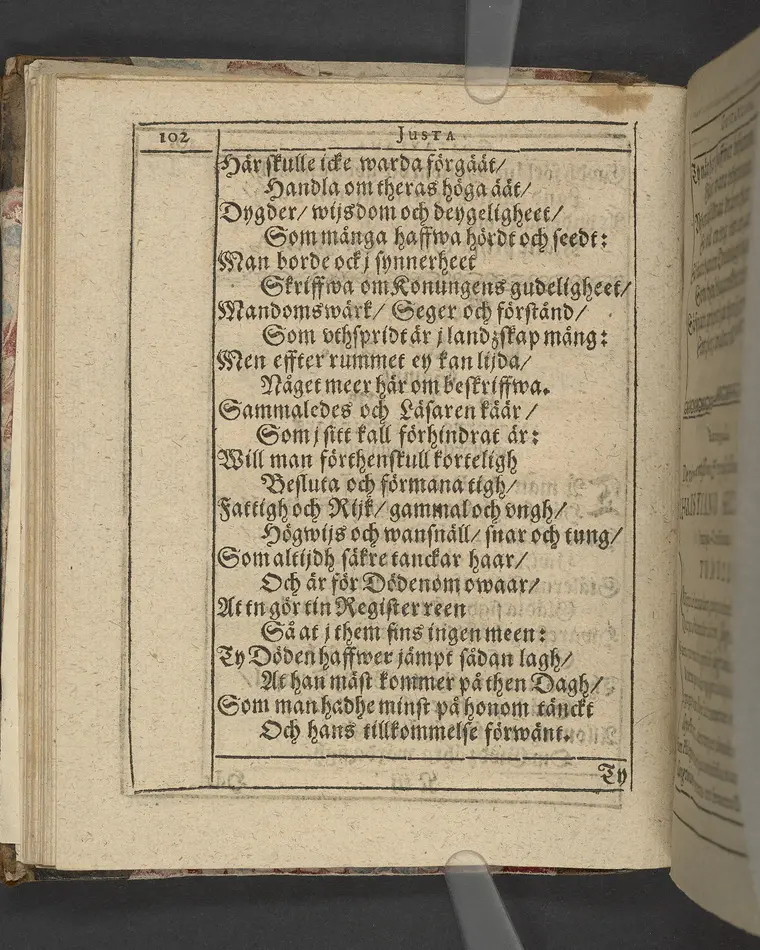 102
JUSTA
Här skulle icke warda förgäät/
Handla om theras höga äät/
Dygder/ wijsdom och deygeligheet/
Som många haffwa hördt och seedt:
Man borde ock j synnerheet
Skriffwa om Konungens gudeligheet/
Mandomswärk/ Seger och förstånd/
Som vthspridt är j landzskap mång:
Men effter rummet ey kan lijda/
Något meer här om beskriffwa.
Sammaledes och Läsaren käär/
Som j sitt kall förhindrat är:
Will man förthenskull korteligh
Besluta och förmana tigh/
Fattigh och Rijk/ gammal och vngh/
Högwijs och wansnäll/ snar och tung/
Som altijdh säkre tanckar haar/
Och är för Dödenom owaar/
At tn gör tin Register reen
Så at j them fins ingen meen:
Ty Döden haffwer jämpt sådan lagh/
At han mäst kommer på then Dagh/
Som man hadhe minst på honom tänckt
Och hans tillkommelse förwänt.
Ty